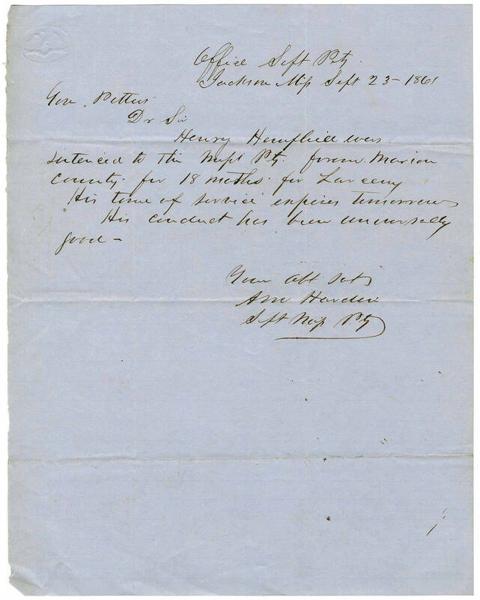 Office Supt Pty
Jackson Mip Sept 23 - 1861
Gov. Pettus
Dr Sir
Henry was
sentenced to the Mipi Pty. from Marion
county for 18 moths for Larceny
His time of service expires tomorrow
His conduct has been universally
good -
Your Obt Svt
Hardin
Supt Mipi Pty